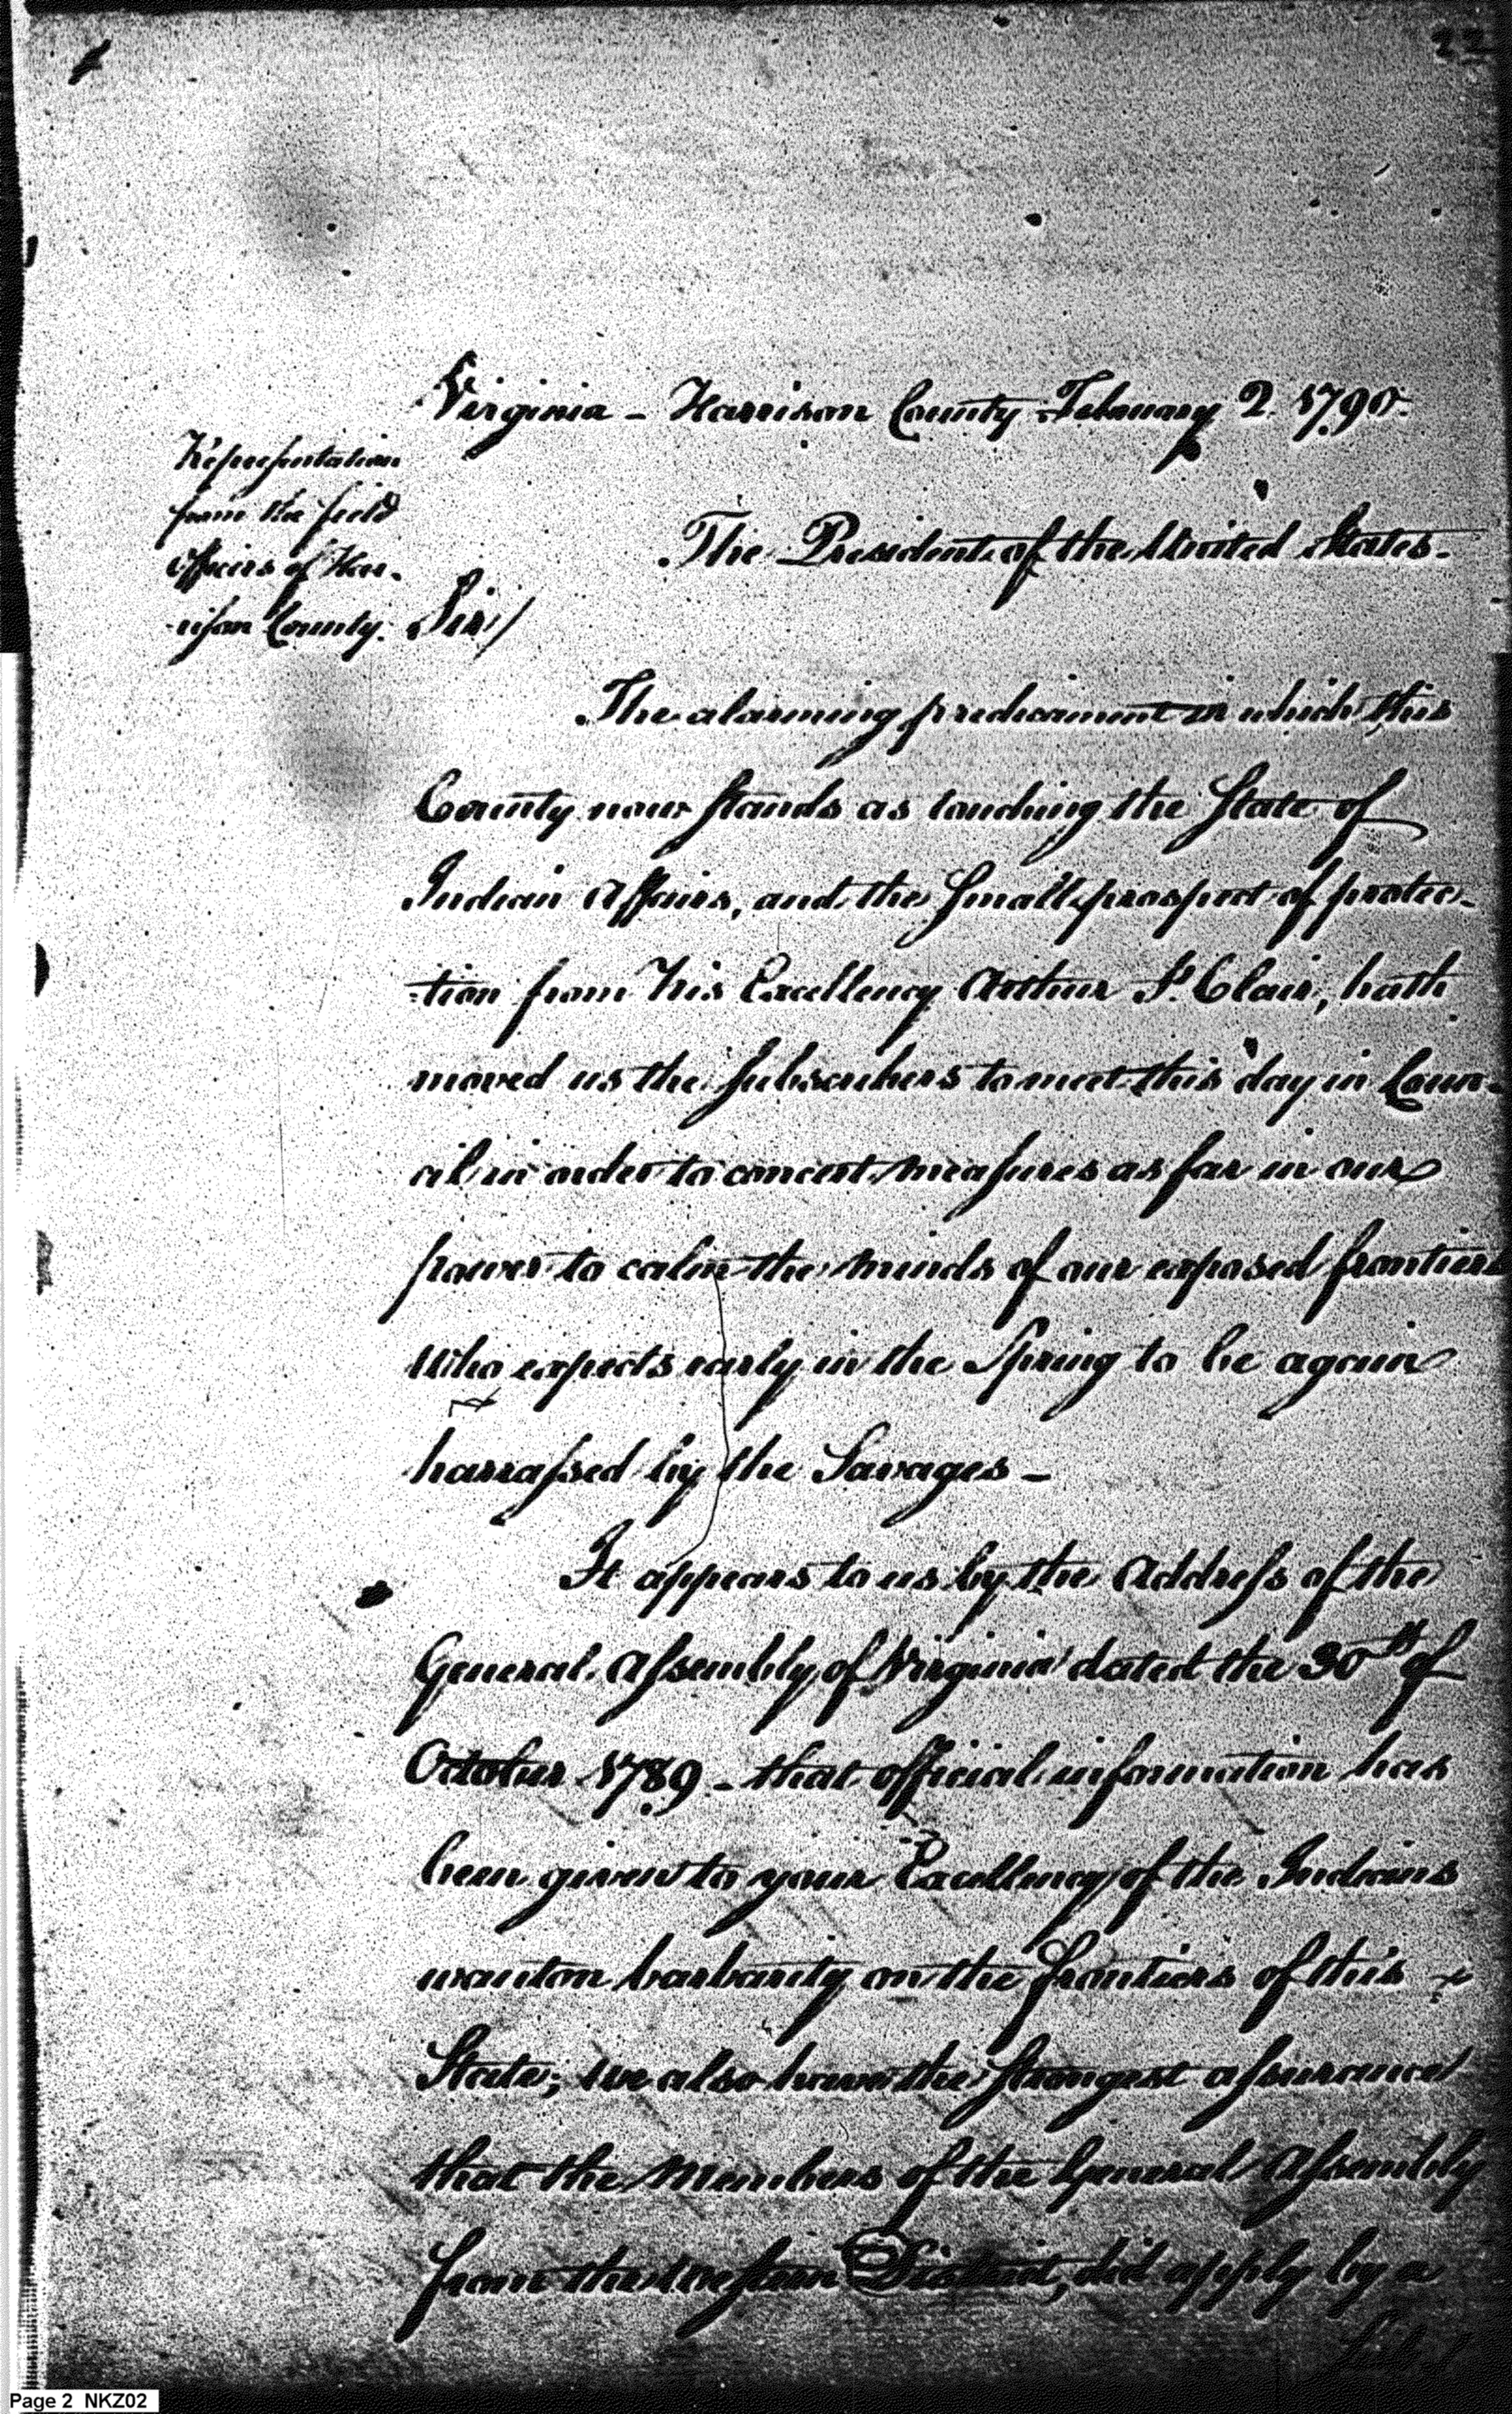 22
Virginia - Harrison County February 2. 1790.
Representation
from the field
officers of Har-
-rison County.
The President of the United States.
Sir/
The alarming predicament in which this
County now stands as touching the State of
Indian Affairs, and the small prospect of protec-
-tion from His Excellency Arthur St. Clair, hath
moved us the subscribers to meet this day in Coun-
cil in order to concert measures as far in our
power to calm the minds of our exposed frontiers
who expects early in the Spring to be again
harrassed by the Savages -
It appears to us by the Address of the
General Assembly of Virginia dated the 30th of
October 1789 - that official information has
been given to your Excellency of the Indians
wanton barbarity on the frontiers of this
State; we also have the strongest assurances
that the Members of the General Assembly
from the Western District, did apply by a
Page 2 NKZ02